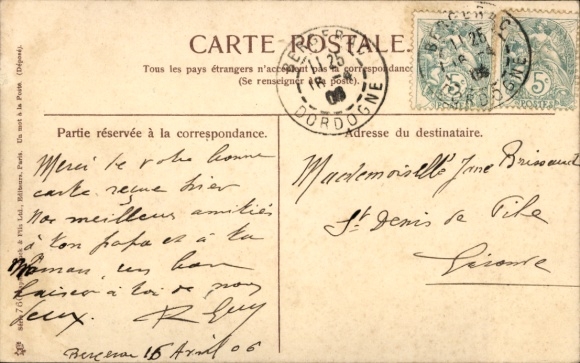 CARTE POSTALE.
Tous les pays étrangers n'acceptent pas la correspondance
(Se renseigner à la poste).
Partie réservée à la correspondance.
Adresse du destinataire.
BERGERAC
11 25
16
06
DORDOGNE
BERGERAC
11 25
16
06
DORDOGNE
5c
POSTES
5c
POSTES
Merci de votre bonne
carte reçue hier
Nos meilleurs amitiés
à ton papa et à ta
Maman, un bon
baiser à toi de nous
deux. R Guy
Bergerac 16 Avril 06
Mademoiselle Jane Brissaud
St Denis de Pile
Gironde
& Fils Ltd., Editeurs, Paris. Un mot à la Poste. (Déposé).